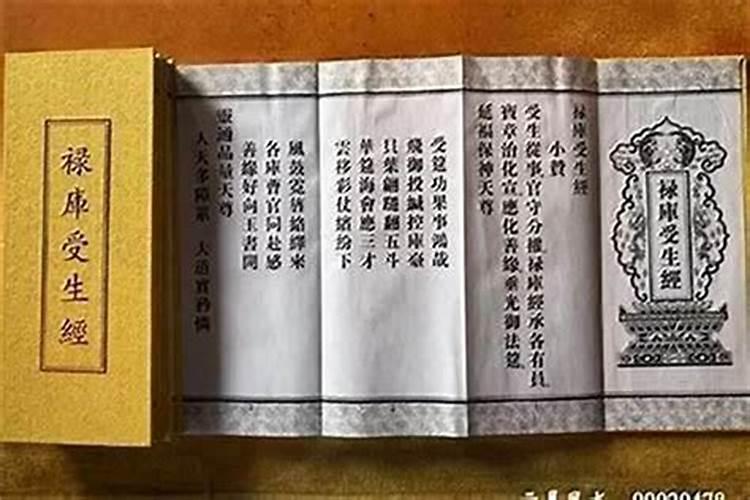 祿庫受生經
祿庫受生經
祿庫受生經
小贊
受生從事官守分權祿庫經承各有員
寶章治化宣應化善緣垂光御法筵
延福保神天尊
受筵功果事鴻哉
飛御投緘控庫臺
貝葉翩躚翻五斗
華筵海會應三才
雲移彩仗繽紛下
風鼓霓旌絡繹來
各庫曹官同赴感
善緣好向玉書開
靈通品量天尊
人天多障累 大道實矜憐
90020478